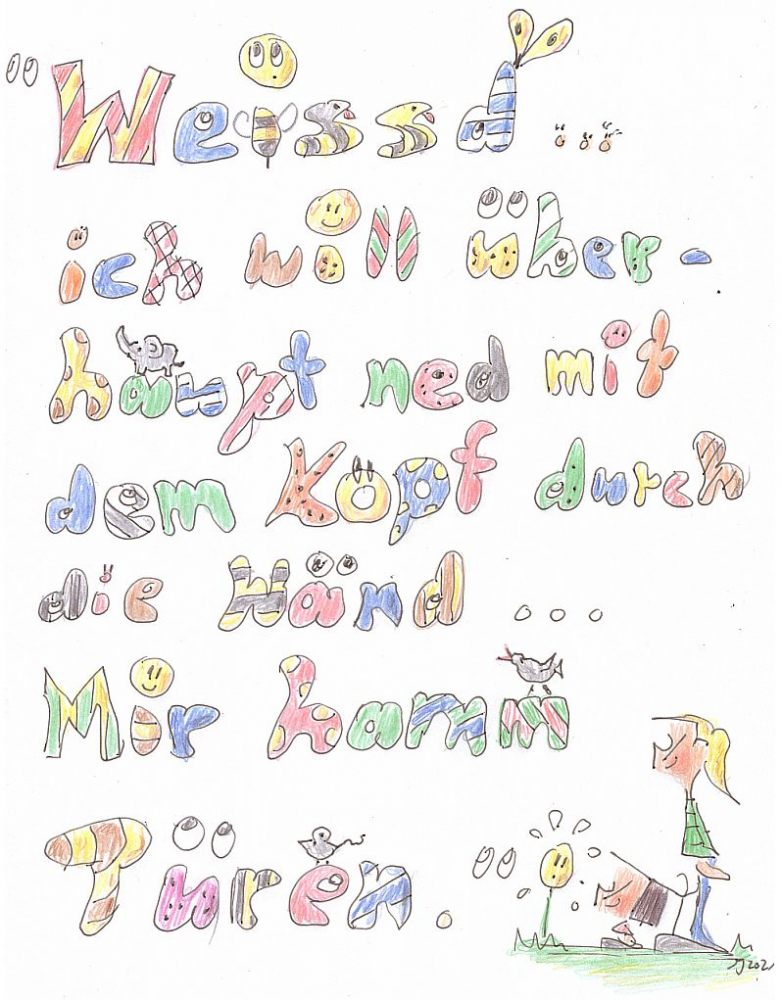 "Weissd ...
ich will über-
haupt ned mit
dem Kopf durch
die Wänd ...
Mir hamm
Türen."